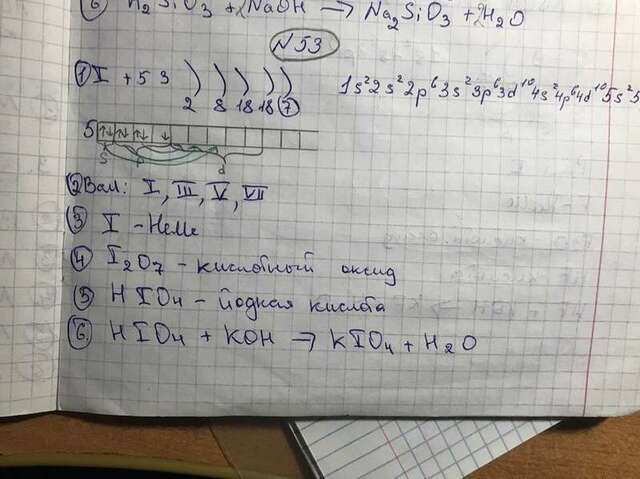 6 H₂SiO₃ + 2NaOH → Na₂SiO₃ + 2H₂O
N53
1 I + 5 3 ) ) ) ) ) 1s²2s²2p⁶3s²3p⁶3d¹⁰4s²4p⁶4d¹⁰5s²5
2 8 18 18 7
5 ↑↓ ↑↓ ↑↓ ↓
s p d
2 Вал: I, III, V, VII
3 I - НеМе
4 I₂O₇ - кислотный оксид
5 HIO₄ - йодная кислота
6. HIO₄ + KOH → KIO₄ + H₂O